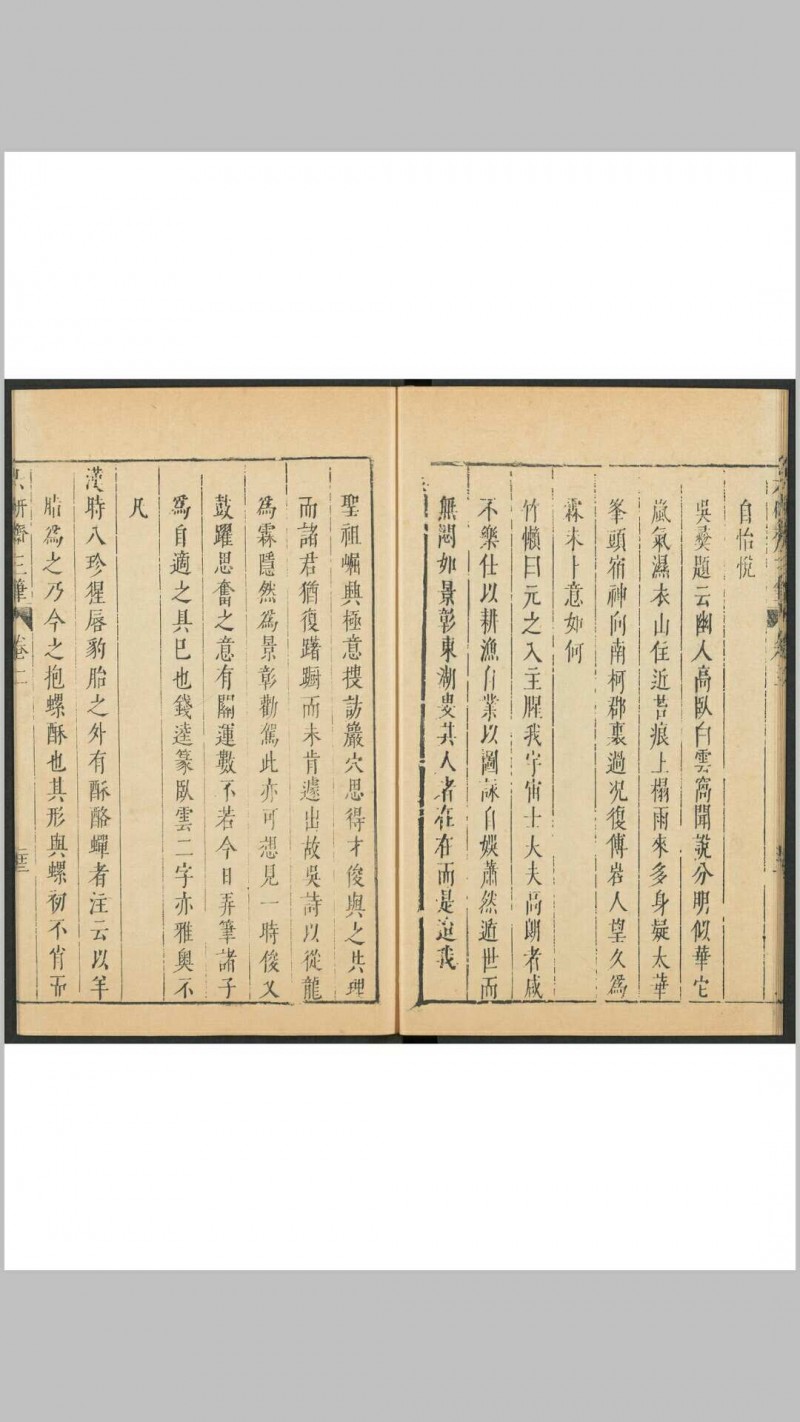 自怡悅
吳彞題云幽人高臥白雲窩聞說分明似華它
嵐氣濕衣山住近苔痕上榻雨來多身疑太華
峯頭宿神向南柯郡裏過況復傅巖人望久爲
霖未卜意如何
竹懶曰元之入主腥我宇宙士大夫高朗者咸
不樂仕以耕漁自業以圖詠自娛蕭然遁世而
無悶如景彰東湖叟其人者在在而是迨我
聖祖崛興極意搜訪巖穴思得才俊與之共理
而諸君猶復躇蹰而未肯遽出故吳詩以從龍
爲霖隱然爲景彰勸駕此亦可想見一時俊乂
鼓躍思奮之意有關運數不若今日弄筆諸子
爲自適之具已也錢逵篆臥雲二字亦雅奧不
凡
漢時八珍猩唇豹胎之外有酥酪蟬者注云以羊
脂爲之乃今之抱螺酥也其形與螺初不肖而
硏齋三筆 卷二